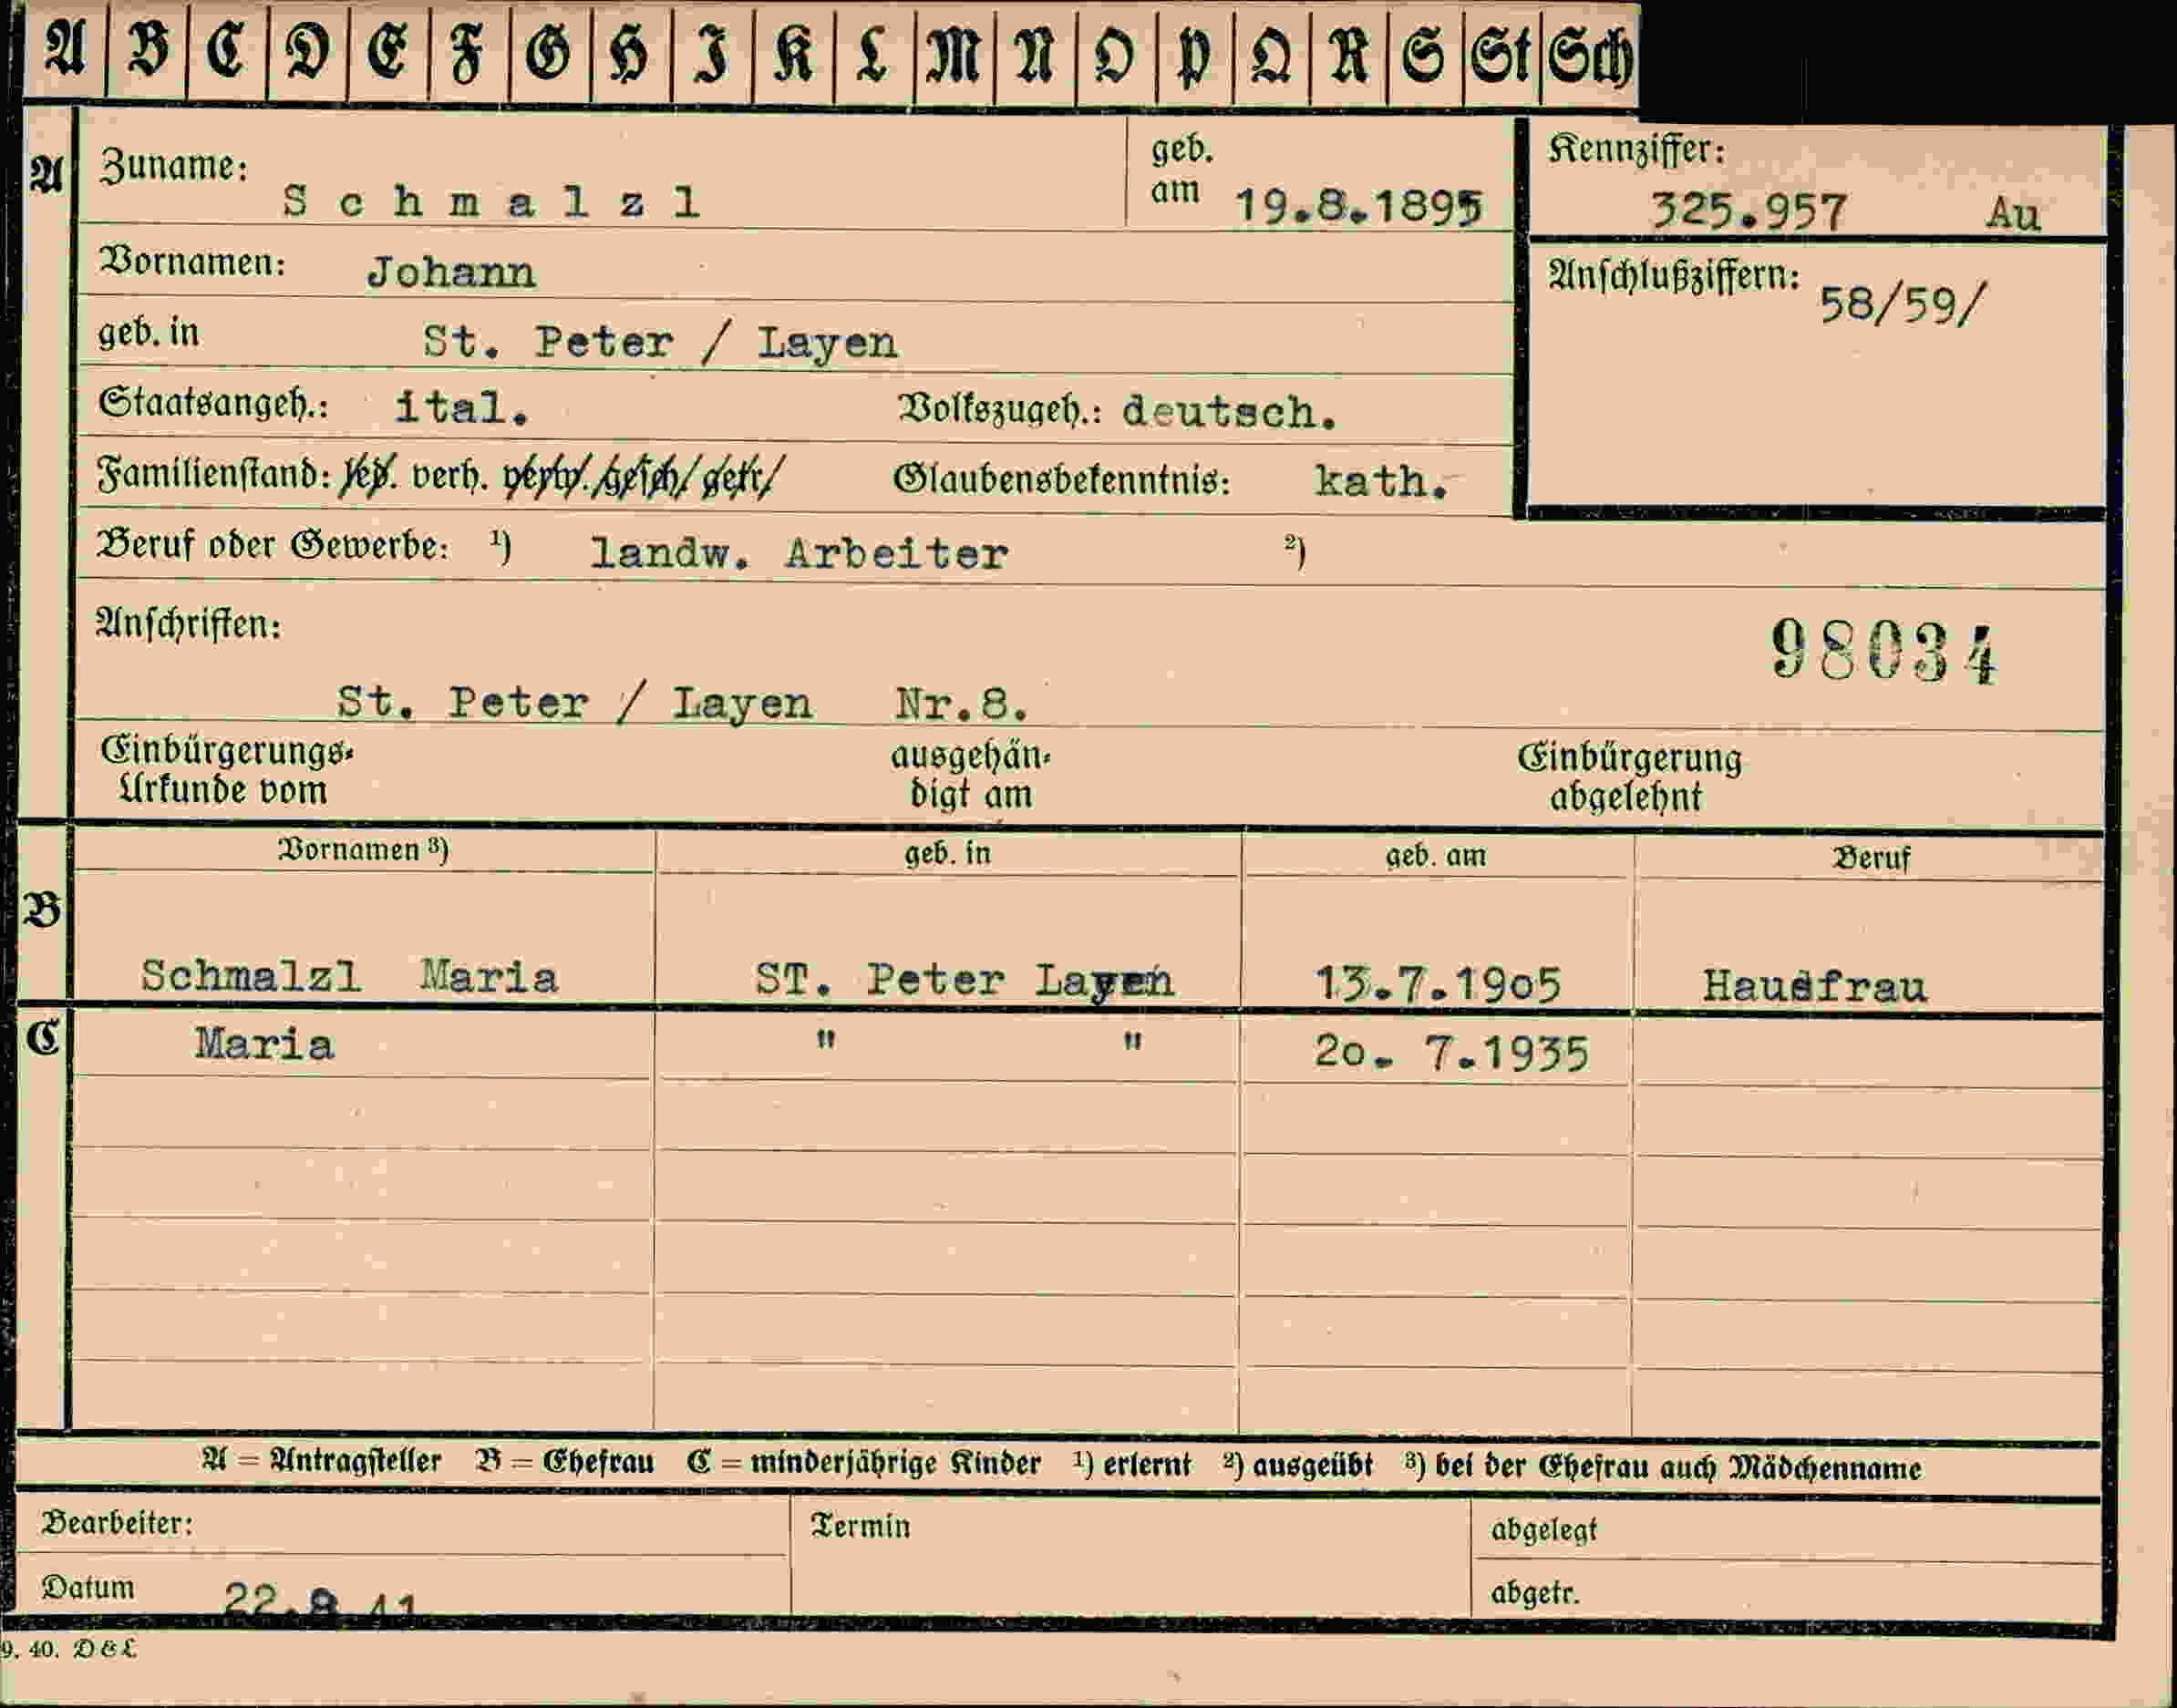 A B C D E F G H I K L M N O P Q R S St Sch
A Zuname: Schmalzl geb. am 19.8.1895 Kennziffer: 325.957 Au
Vornamen: Johann Anschlußziffern: 58/59/
geb. in St. Peter / Layen
Staatsangeh.: ital. Volkszugeh.: deutsch.
Familienstand: led. verh. verw. gesch. getr. Glaubensbekenntnis: kath.
Beruf oder Gewerbe: ¹) landw. Arbeiter ²)
Anschriften: 98034
St. Peter / Layen Nr.8.
Einbürgerungs- ausgehän- Einbürgerung
Urkunde vom digt am abgelehnt
Vornamen ³) geb. in geb. am Beruf
B
Schmalzl Maria ST. Peter Layen 13.7.1905 Hausfrau
C Maria " " 20. 7.1935
A = Antragsteller B = Ehefrau C = minderjährige Kinder ¹) erlernt ²) ausgeübt ³) bei der Ehefrau auch Mädchenname
Bearbeiter: Termin abgelegt
Datum 22.8.41 abgetr.
9. 40. D & L